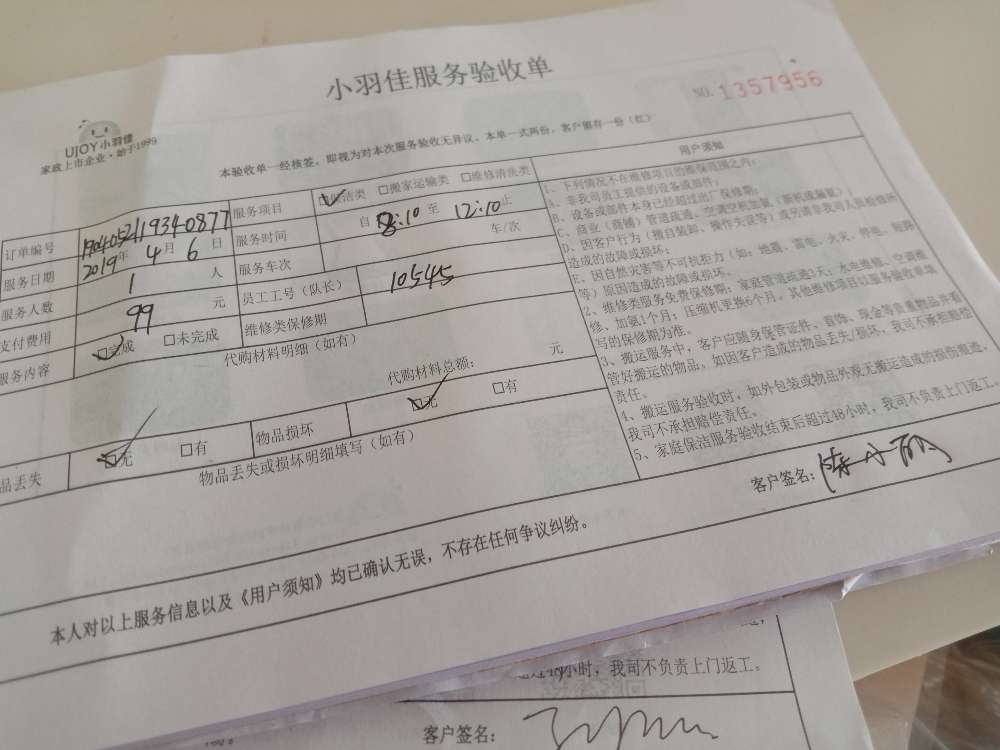 小羽佳服务验收单
NO. 1357956
UJOY小羽佳
家政上市企业·始于1999
本验收单一经核签，即视为对本次服务验收无异议。本单一式两份，客户留存一份（红）
订单编号
服务项目 保洁类 □搬家运输类 □维修清洗类
服务日期 2019年 4月 6日 服务时间 自 8:10 至 12:10 止
服务人数 1 人 服务车次 车/次
支付费用 99 元 员工工号（队长） 10545
服务内容 □完成 □未完成 维修类保修期
代购材料明细（如有）
代购材料总额： 元
品丢失 □无 □有 物品损坏 □无 □有
物品丢失或损坏明细填写（如有）
用户须知
1、下列情况不在维修项目的维保范围之内：
A、非我司员工提供的设备或部件；
B、设备或部件本身已经超过出厂保修期；
C、商业（商铺）管道疏通、空调空机加氟（新机或漏氟）；
D、因客户行为（擅自装卸、操作失误等）或另请非我司人员检修所
造成的故障或损坏；
E、因自然灾害等不可抗拒力（如：地震、雷电、火灾、停电、短路
等）原因造成的故障或损坏。
2、维修类服务免费保修期：家庭管道疏通3天；水电维修、空调维
修、加氟1个月；压缩机更换6个月。其他维修项目以服务验收单填
写的保修期为准。
3、搬运服务中，客户应随身保管证件、首饰、现金等贵重物品并看
管好搬运的物品，如因客户造成的物品丢失/损坏，我司不承担赔偿
责任。
4、搬运服务验收时，如外包装或物品外观无搬运造成的损伤痕迹，
我司不承担赔偿责任。
5、家庭保洁服务验收结束后超过48小时，我司不负责上门返工。
客户签名：陈小丽
本人对以上服务信息以及《用户须知》均已确认无误，不存在任何争议纠纷。
小时，我司不负责上门返工。
客户签名：